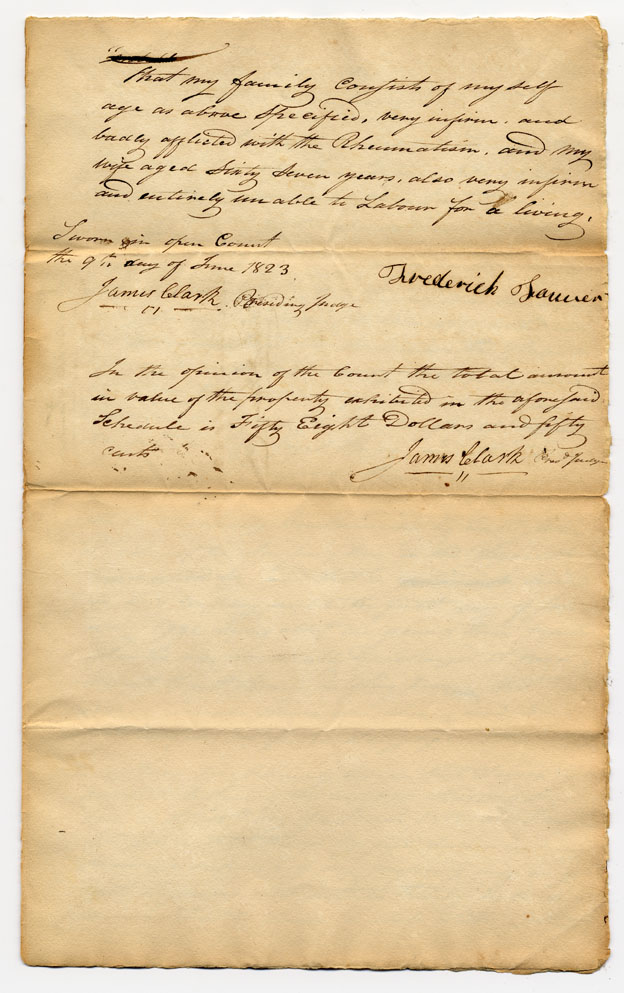 that my family consists of my self
age as above specified, very infirm. and
badly afflicted with the Rheumatism. and my
wife aged Sixty Seven years, also very infirm
and entirely unable to Labour for a living.
Sworn in open Court
the 9th day of June 1823
Frederick
James Clark Presiding Judge
In the opinion of the Court the total amount
in value of the property exhibited in the aforesaid
Schedule is Fifty Eight Dollars and fifty
cents
James Clark Judge